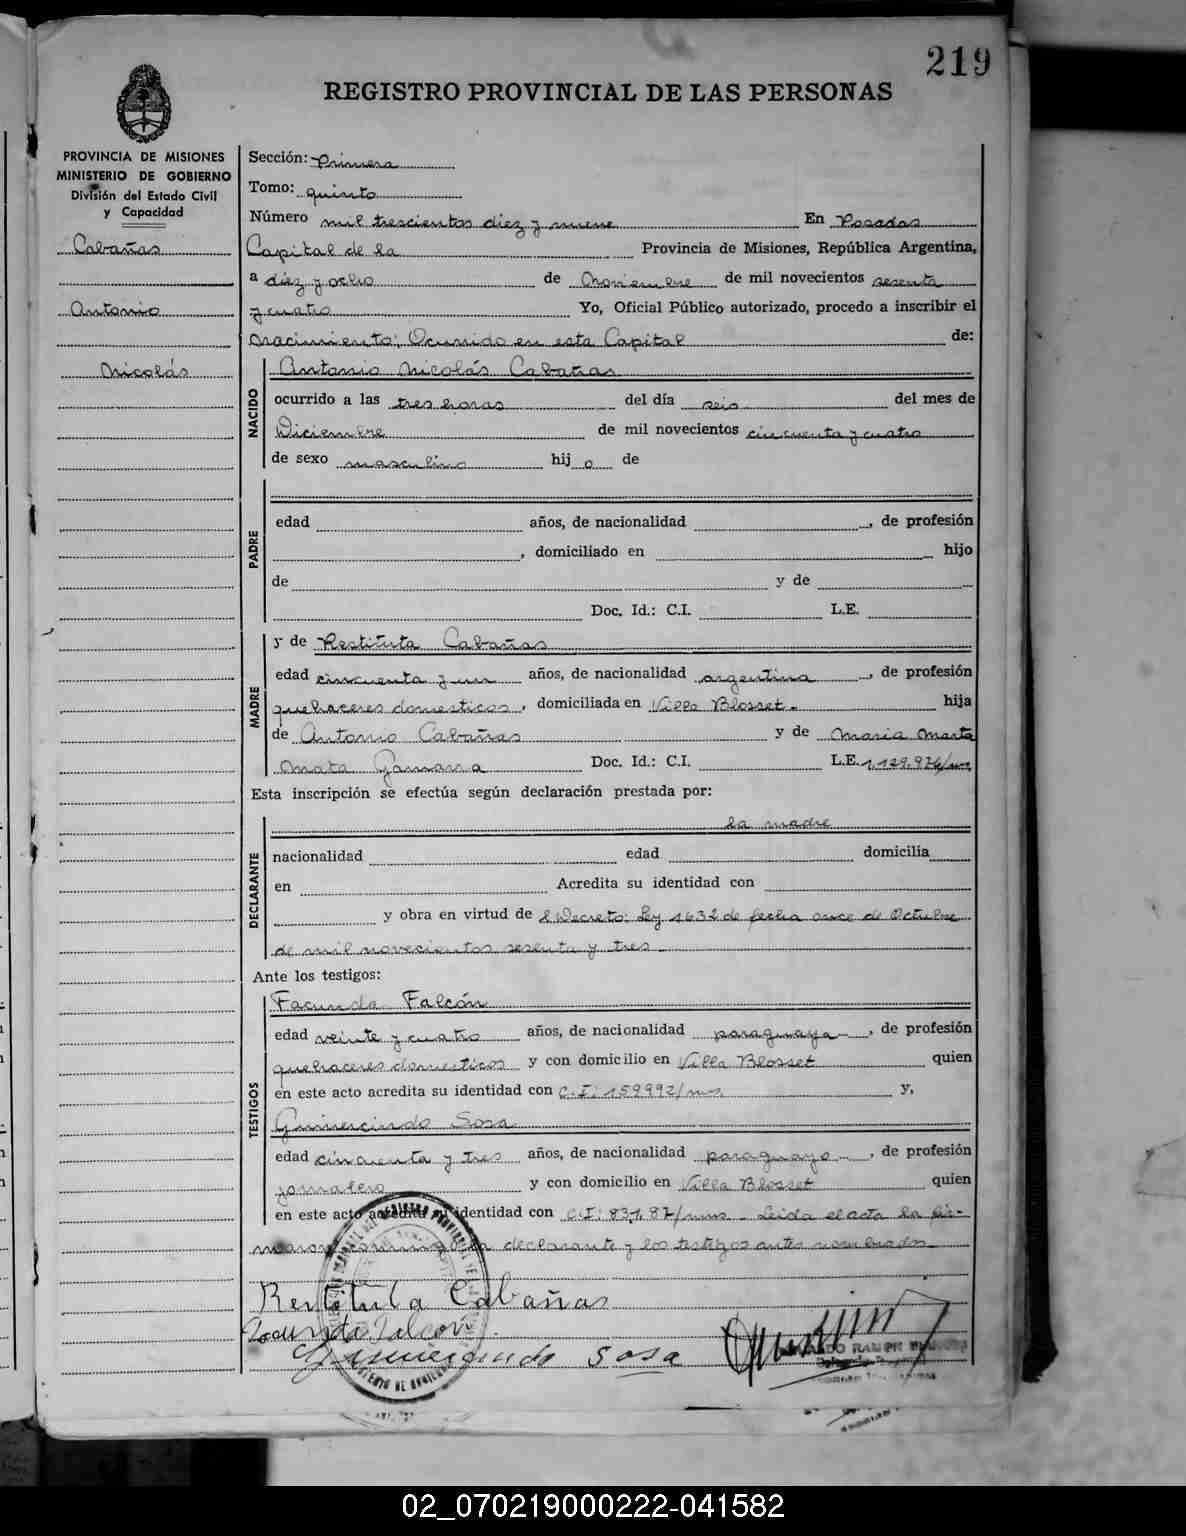 219
REGISTRO PROVINCIAL DE LAS PERSONAS
PROVINCIA DE MISIONES
MINISTERIO DE GOBIERNO
División del Estado Civil
y Capacidad
Cabañas
Antonio
Nicolás
Sección: Primera
Tomo: quinto
Número mil trescientos diez y nueve En Posadas
Capital de la Provincia de Misiones, República Argentina,
a diez y ocho de Noviembre de mil novecientos sesenta
y cuatro Yo, Oficial Público autorizado, procedo a inscribir el
Nacimiento; Ocurrido en esta Capital de:
NACIDO
Antonio Nicolás Cabañas
ocurrido a las tres horas del día seis del mes de
Diciembre de mil novecientos cincuenta y cuatro
de sexo masculino hij o de
PADRE
edad años, de nacionalidad , de profesión
, domiciliado en hijo
de y de
Doc. Id.: C.I. L.E.
MADRE
y de Restituta Cabañas
edad cincuenta y un años, de nacionalidad argentina , de profesión
quehaceres domesticos , domiciliada en Villa Blosset.- hija
de Antonio Cabañas y de Maria Marta
Mata Gamarra Doc. Id.: C.I. L.E. 1.129.976/
Esta inscripción se efectúa según declaración prestada por:
DECLARANTE
la madre
nacionalidad edad domicilia
en Acredita su identidad con
y obra en virtud de l Decreto: Ley 1632 de fecha once de Octubre
de mil novecientos sesenta y tres
Ante los testigos:
TESTIGOS
Facunda Falcón
edad veinte y cuatro años, de nacionalidad paraguaya - , de profesión
quehaceres domesticos y con domicilio en Villa Blosset quien
en este acto acredita su identidad con C.I: 159992/mns y,
Gumercindo Sosa
edad cincuenta y tres años, de nacionalidad paraguayo - , de profesión
jornalero y con domicilio en Villa Blosset quien
en este acto acredita su identidad con C.I: 83787/mns - Leida el acta la fir-
la declarante y los testigos antes nombrados
Restituta Cabañas
Facunda Falcon
Gumercindo Sosa
02_070219000222-041582